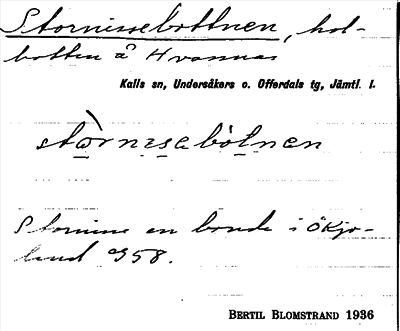 Stornissebottnen, hol-
botten å Hvannas
Kalls sn, Undersåkers o. Offerdals tg, Jämtl. l.
stòrnisebòtnen
Stornisse en bonde i Ökjo-
lund 958.
BERTIL BLOMSTRAND 1936